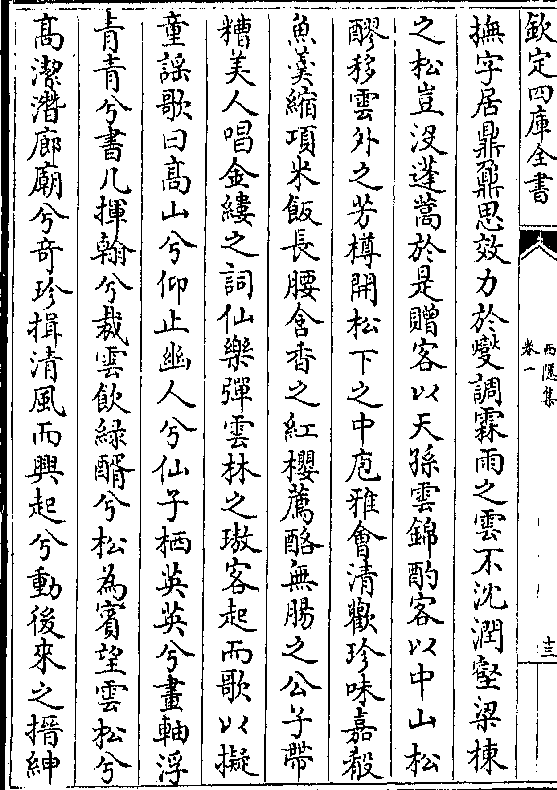 欽定四庫全書
西隱集
卷一
十三
撫字居鼎鼐思效力於燮調霖雨之雲不沈潤壑梁棟
之松豈没蓬蒿於是贈客以天孫雲錦酌客以中山松
醪移雲外之芳樽開松下之中庖雅會清歡珍味嘉殽
魚羮縮項米飯長腰含香之紅櫻薦酪無腸之公子帶
糟美人唱金縷之詞仙樂彈雲林之璈客起而歌以擬
童謡歌曰高山兮仰止幽人兮仙子栖英英兮畫軸浮
青青兮書几揮翰兮裁雲飲緑醑兮松為賓望雲松兮
高潔濳廊廟兮竒珍揖清風而興起兮動後來之搢紳